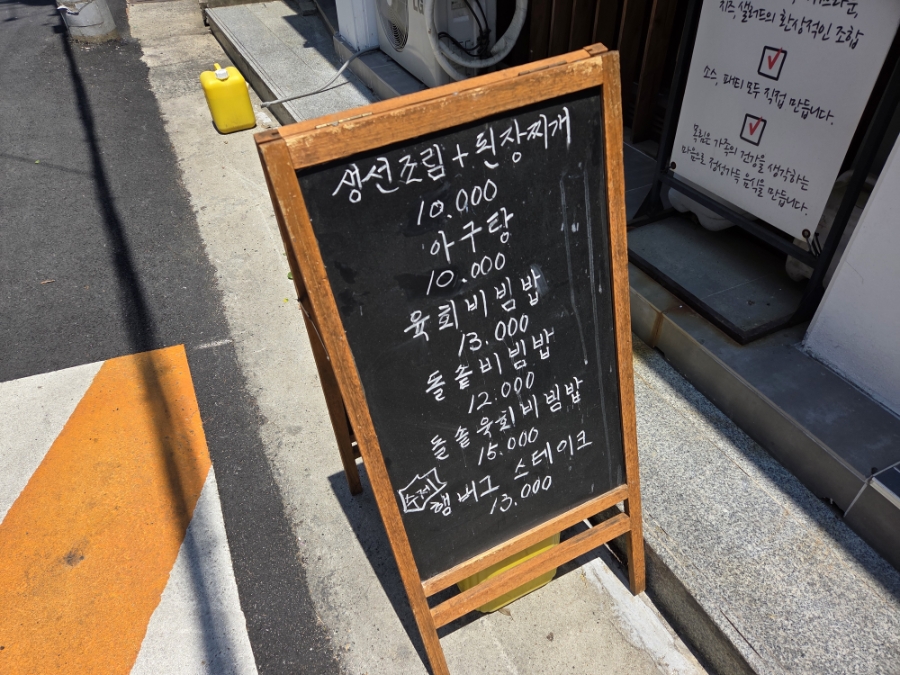 생선조림 + 된장찌개
10.000
아구탕
10.000
육회비빔밥
13.000
돌솥비빔밥
12.000
돌솥육회비빔밥
15.000
수제
햄버그 스테이크
13.000
LG
치즈, 샐러드의 환상적인 조합
소스, 패티 모두 직접 만듭니다.
목림은 가족의 건강을 생각하는
마음으로 정성가득 음식을 만듭니다.